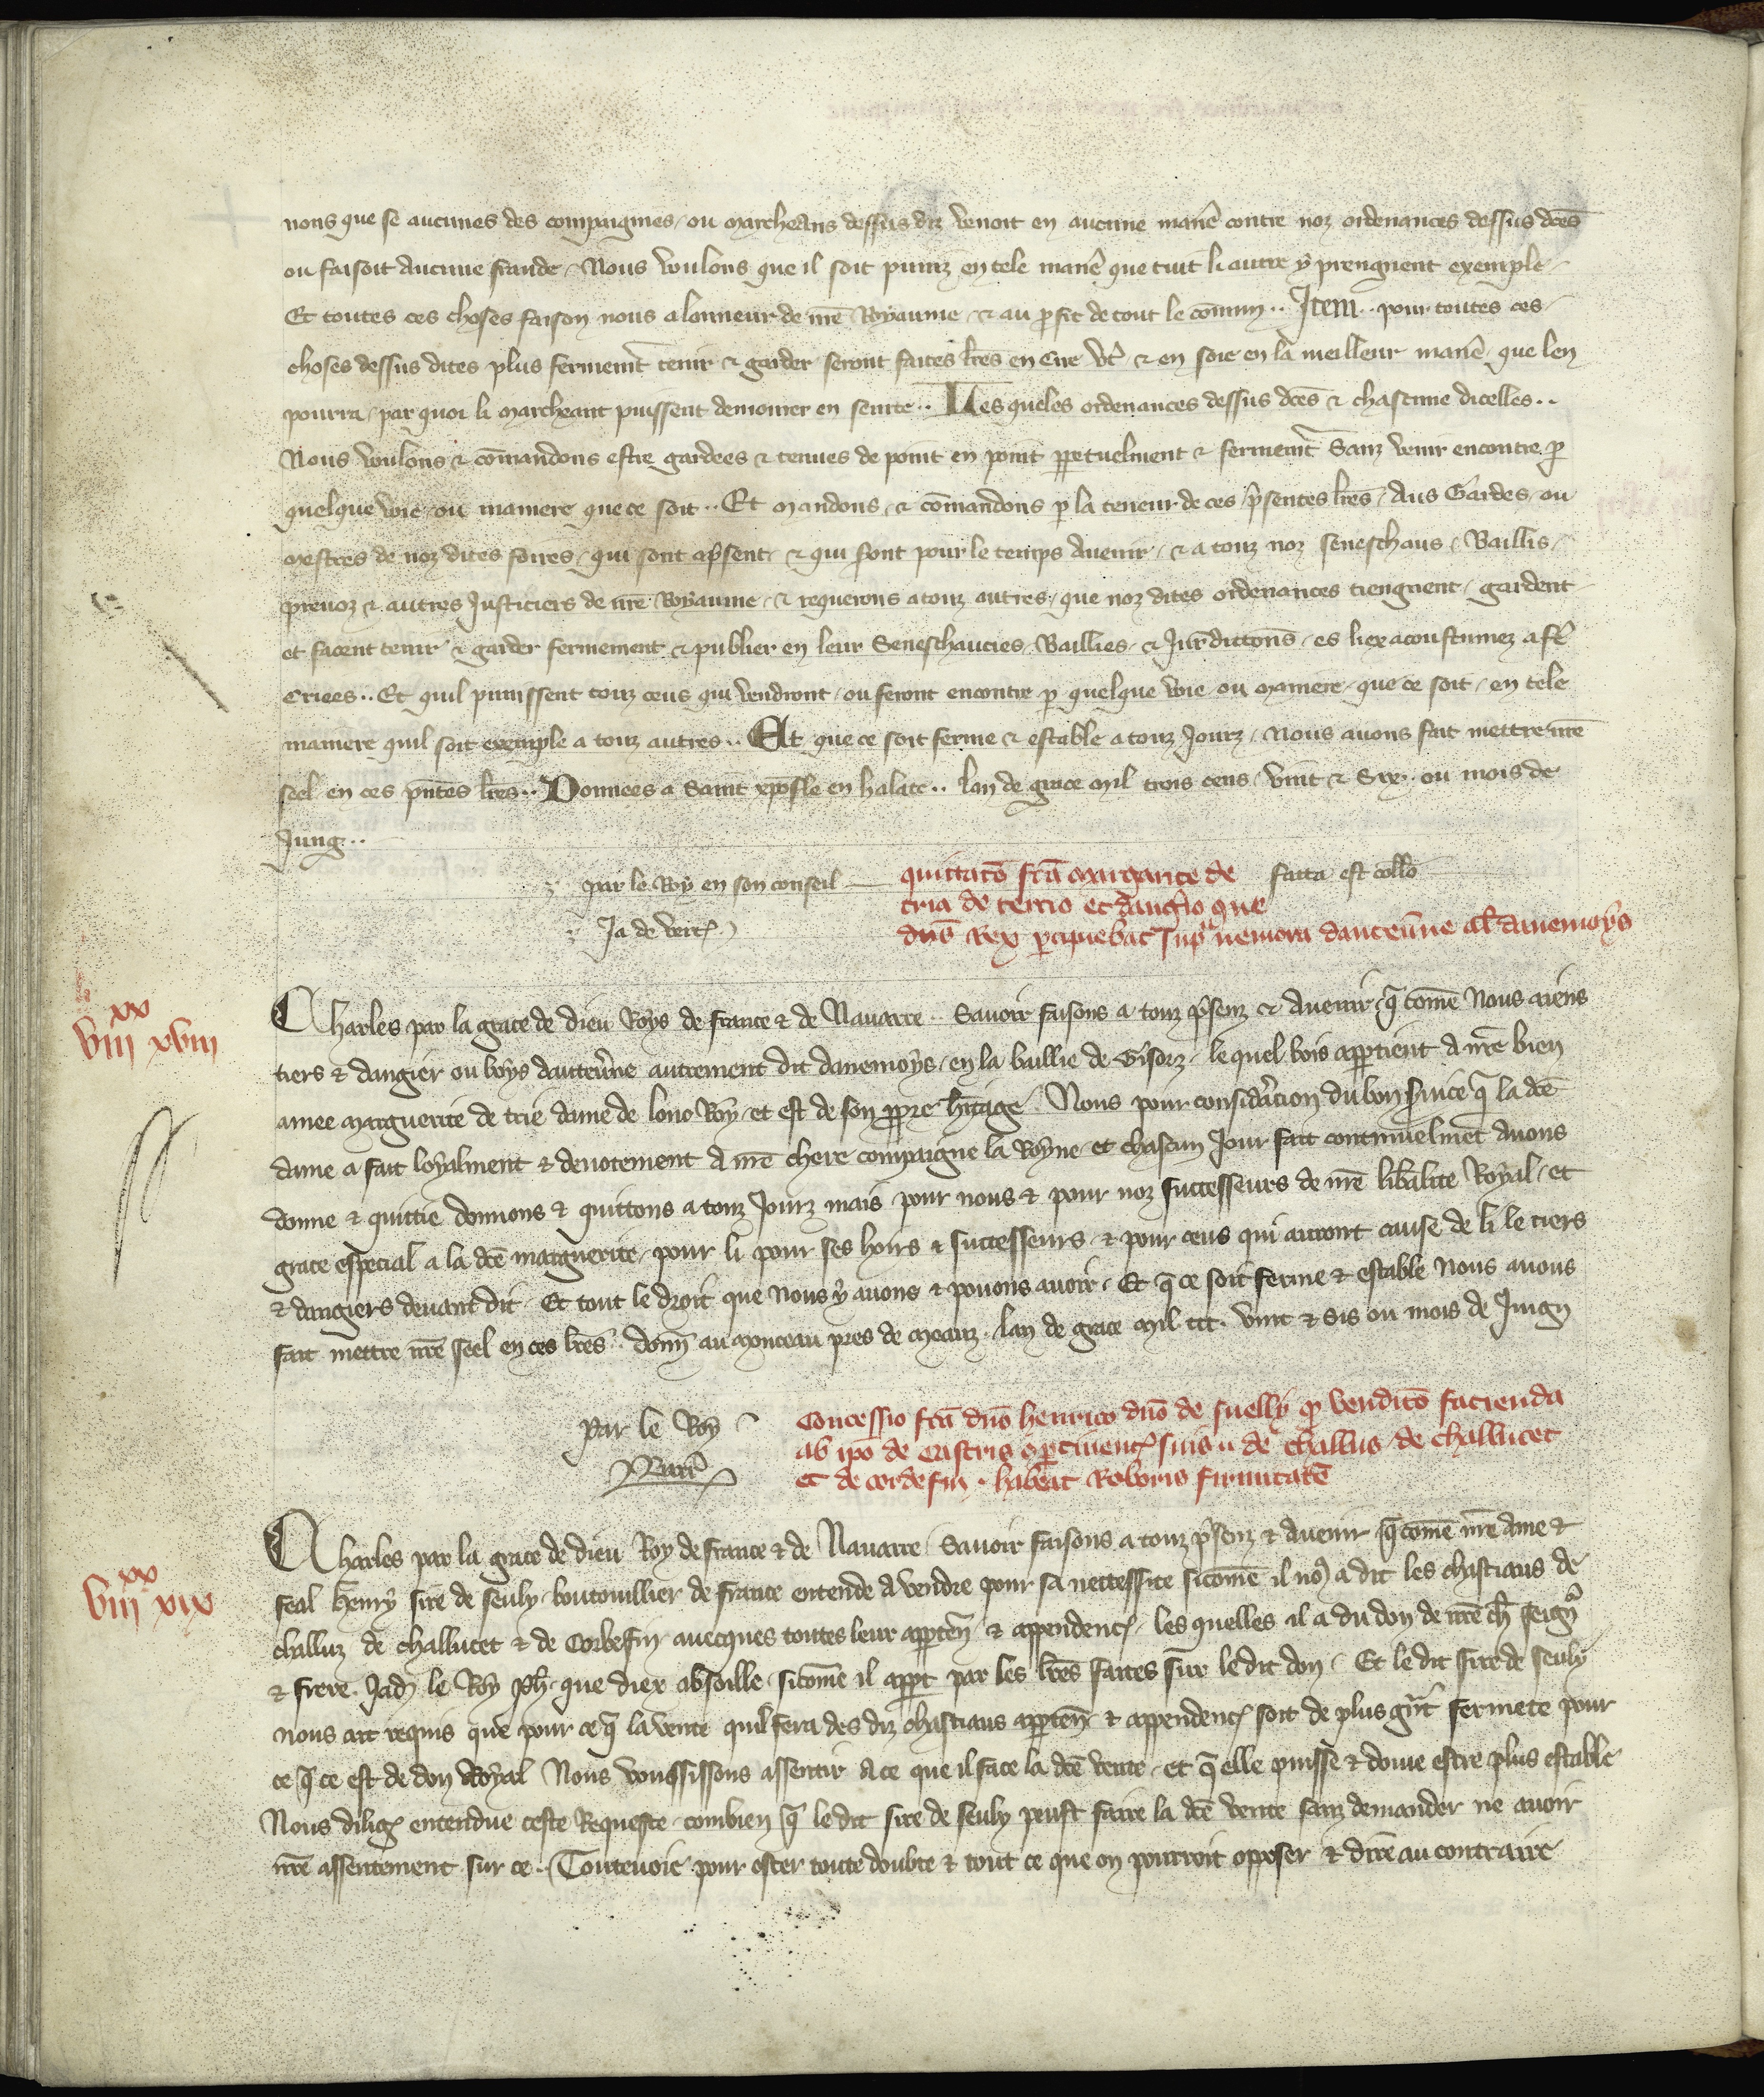 nons que se aucunes des compaignies ou marcheans dessus diz venoit en aucune manē contre noz ordenances dessus dc̄es
ou faisoit aucune fraude. Nous voulons que il soit puniz en tele manē que tuit li autre y prengnent exemple
Et toutes ces choses faison nous a lonneur de nr̄e Royaume & au ꝓfit de tout le cōmun .. Item .. pour toutes ces
choses dessus dites plus fermemt̄ tenir & garder seront faites lr̄es en & en soie en la meilleur manē que len
pourra par quoi li marcheant puissent demourer en seurte .. Les queles ordenances dessus dc̄es & chascune dicelles ..
Nous voulons & cōmandons estre gardees & tenues de point en point ꝑpetuelment & fermemt̄ Sanz venir encontre ꝑ
quelque voie ou maniere que ce soit .. Et mandons & cōmandons ꝑ la teneur de ces p̄sentes lr̄es Aus Gardes ou
mestres de noz dites foires qui sont ap̄sent & qui s̄ont pour le temps avenir & a touz noz seneschaus Baillis
prevoz & autres Justiciers de nr̄e Royaume & requerons a touz autres que noz dites ordenances tiengnent gardent
et facent tenir & garder fermement & publier en leur Seneschaucies Baillies & Jurīdictions es liex acoustumez a fē
Criees .. Et quil punissent touz ceus qui vendront ou feront encontre ꝑ quelque voie ou maniere que ce soit en tele
maniere quil soit exemple a touz autres .. Et que ce soit ferme & estable a touz Jourz Nous avons fait mettre nr̄e
seel en ces pn̄tes lr̄es .. Donnees a Saint xp̄ofle en halate .. lan de grace mil trois cens vint & Sex ou mois de
Jung ..
par le Roy en son conseil
Ja de vert
facta est coll̄o
quittatō fc̄a margarite de
tria de tercio et dang̉io que
dn̄s Rex ꝑcipiebat sup̉ nemora dauteūne al̄ davemoys
viii xviii
xx
Charles par la grace de dieu Roys de france & de Navarre .. Savoir faisons a touz p̄senz & avenir q̄ comē Nous aiens
tiers & dangier ou boys dautev̉ne autrement dit danemoys en la baillie de Gisorz le quel bois appartient a nr̄e bien
amee marguerite de trie dame de lonc Roy et est de son ꝓpre h̉itage. Nous pour consid̉acion du bon ẜvice q̄ la dc̄e
dame a fait loyalment & devotement a nr̄e chere compaigne la Royne et chascun Jour fait continuelmēt avons
donne & quittie donnons & quittons a touz Jourz mais pour nous & pour noz successeurs de nr̄e lib̉alite Royal et
grace especial a la dc̄e marguerite pour li pour ses hoirs & successeurs & pour ceus qui auront cause de li le tiers
& dangiers devant dit Et tout le droit que Nous y avons & povons avoir. Et q̄ ce soit ferme & estable Nous avons
fait mettre nr̄e seel en ces lr̄es .. Donn̄ au monceau pres de meauz. lan de grace mil ccc. vint & sis ou mois de Juign
par le Roy
Barr̄
Concessio fc̄a dn̄o henrico dn̄o de suelly q̄ venditō facienda
ab ip̄o de castris & ꝑtinenc̄ suis de challus de challucet
et de corbefin. habeat Roboris firmitatē
viii xix
xx
Charles par la grace de dieu Roy de france & de Navarre Savoir faisons a touz p̄senz & avenir q̄ comē nr̄e ame &
feal Henry sire de seuly bouteuillier de france entende a vendre pour sa necessite sicomē il no9 a dit les chastiaus de
challuz de challucet & de Corbefin avecques toutes leur apparten̄ & appendenc̄ les quelles il a du don de nr̄e ch̄ seign̉
& frere Jad̄ le Roy Ph̄ que diex absoille sicomē il appt̄ par les lr̄es faites sur le dit don. Et le dit sire de seuly
nous ait requis que pour ce q̄ la vente quil fera des diz chastiaus apparten̄ & appendenc̄ soit de plus gr̄nt fermete pour
ce q̄ ce est de don Royal Nous voussissons assentir a ce que il face la dc̄e vente et q̄ elle puisse & doive estre plus estable
Nous diliḡ entendue ceste Requeste combien q̄ le dit sire de seuly peust faire la dc̄e vente sanz demander ne avoir
nr̄e assentement sur ce. Toutevoie pour oster toute doubte & tout ce que on pourroit opposer & dire au contraire